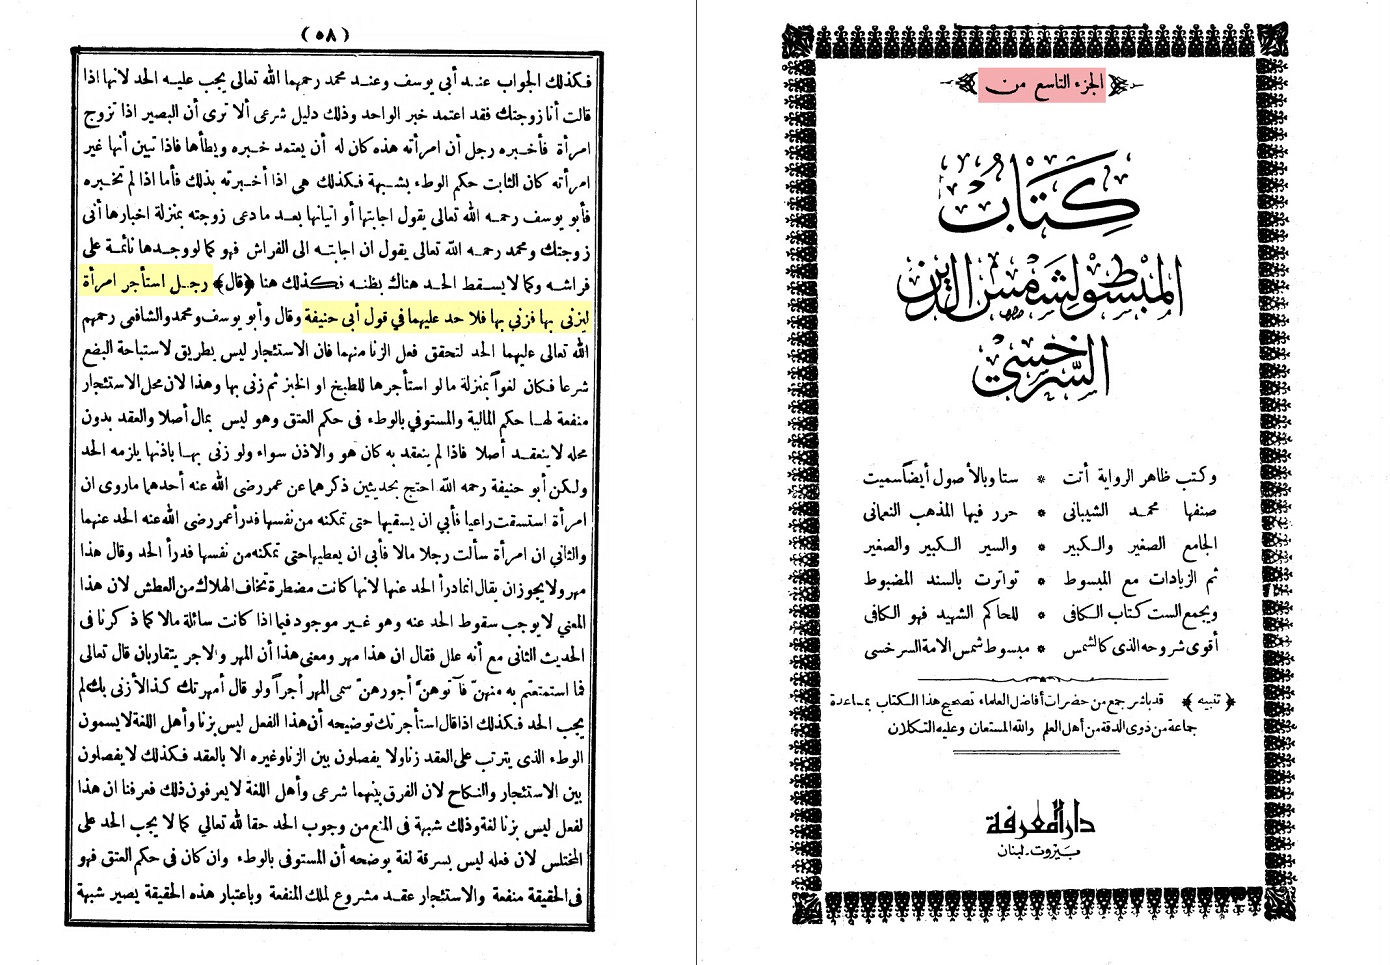 الجزء التاسع من
كتاب
المبسوط لشمس الدين
السرخسي
وكتب ظاهر الرواية أتت * ستا وبالأصول أيضا سميت
صنفها محمد الشيباني * حرر فيها المذهب النعماني
الجامع الصغير والكبير * والسير الكبير والصغير
ثم الزيادات مع المبسوط * تواترت بالسند المضبوط
ويجمع الست كتاب الكافى * للحاكم الشهيد فهو الكافى
أقوى شروحه الذى كالشمس * مبسوط شمس الامة السرخسى
﴿ تنبيه ﴾ قد باشر جمع من حضرات أفاضل العلماء تصحيح هذا الكتاب بمساعدة
جماعة من ذوى الدقة من أهل العلم والله المستعان وعليه التكلان
دار المعرفة
بيروت - لبنان
(٥٨)
فكذلك الجواب عند أبى يوسف وعند محمد رحمهما الله تعالى يجب عليه الحد لانها اذا
قالت أنا زوجتك فقد اعتمد خبر الواحد وذلك دليل شرعى ألا ترى أن البصير اذا تزوج
امرأة فأخبره رجل أن امرأته هذه كان له أن يعتمد خبره ويطأها فاذا تبين أنها غير
امرأته كان الثابت حكم الوطء بشبهة فكذلك هى اذا أخبرته بذلك فأما اذا لم تخبره
فأبو يوسف رحمه الله تعالى يقول اجابتها أو اتيانها بعد ما دعى زوجته بمنزلة اخبارها أنى
زوجتك ومحمد رحمه الله تعالى يقول ان اجابته الى الفراش فهو كما لو وجدها نائمة على
فراشه وكما لا يسقط الحد هناك بظنه فكذلك هنا ﴿قال﴾ رجل استأجر امرأة
ليزنى بها فزنى بها فلا حد عليهما في قول أبى حنيفة وقال وأبو يوسف ومحمد والشافعى رحمهم
الله تعالى عليهما الحد لتحقق فعل الزنا منهما فان الاستئجار ليس بطريق لاستباحة البضع
شرعا فكان لغواً بمنزلة ما لو استأجرها للطبخ او الخبز ثم زنى بها وهذا لان محل الاستئجار
منفعة لها حكم المالية والمستوفي بالوطء فى حكم العتق وهو ليس بمال أصلا والعقد بدون
محله لا ينعقد أصلا فاذا لم ينعقد به كان هو والاذن سواء ولو زنى بها باذنها يلزمه الحد
ولكن أبو حنيفة رحمه الله احتج بحديثين ذكرهما عن عمر رضى الله عنه أحدهما ماروى ان
امرأة استسقت راعيا فأبي ان يسقيها حتى تمكنه من نفسها فدرأ عمر رضى الله عنه الحد عنهما
والثانى ان امرأة سألت رجلا مالا فأبى ان يعطيها حتى تمكنه من نفسها فدرأ الحد وقال هذا
مهر ولا يجوز ان يقال انما درأ الحد عنها لانها كانت مضطرة تخاف الهلاك من العطش لان هذا
المعني لا يوجب سقوط الحد عنه وهو غير موجود فيما اذا كانت سائلة مالا كما ذكرنا فى
الحديث الثانى مع أنه علل فقال ان هذا مهر ومعنى هذا أن المهر والاجر يتقاربان قال تعالى
فما استمتعتم به منهنّ فآتوهنّ أجورهنّ سمى المهر أجراً ولو قال أمهرتك كذا لأزنى بك لم
يجب الحد فكذلك اذا قال استأجرتك توضيحه أن هذا الفعل ليس بزنا وأهل اللغة لا يسمون
الوطء الذى يترتب على العقد زنا ولا يفصلون بين الزنا وغيره الا بالعقد فكذلك لا يفصلون
بين الاستئجار والنكاح لان الفرق بينهما شرعى وأهل اللغة لا يعرفون ذلك فعرفنا ان هذا
لفعل ليس بزنا لغة وذلك شبهة فى المنع من وجوب الحد حقا لله تعالى كما لا يجب الحد على
المختلس لان فعله ليس بسرقة لغة يوضحه أن المستوفى بالوطء وان كان فى حكم العتق فهو
فى الحقيقة منفعة والاستئجار عقد مشروع لملك المنفعة وباعتبار هذه الحقيقة يصير شبهة